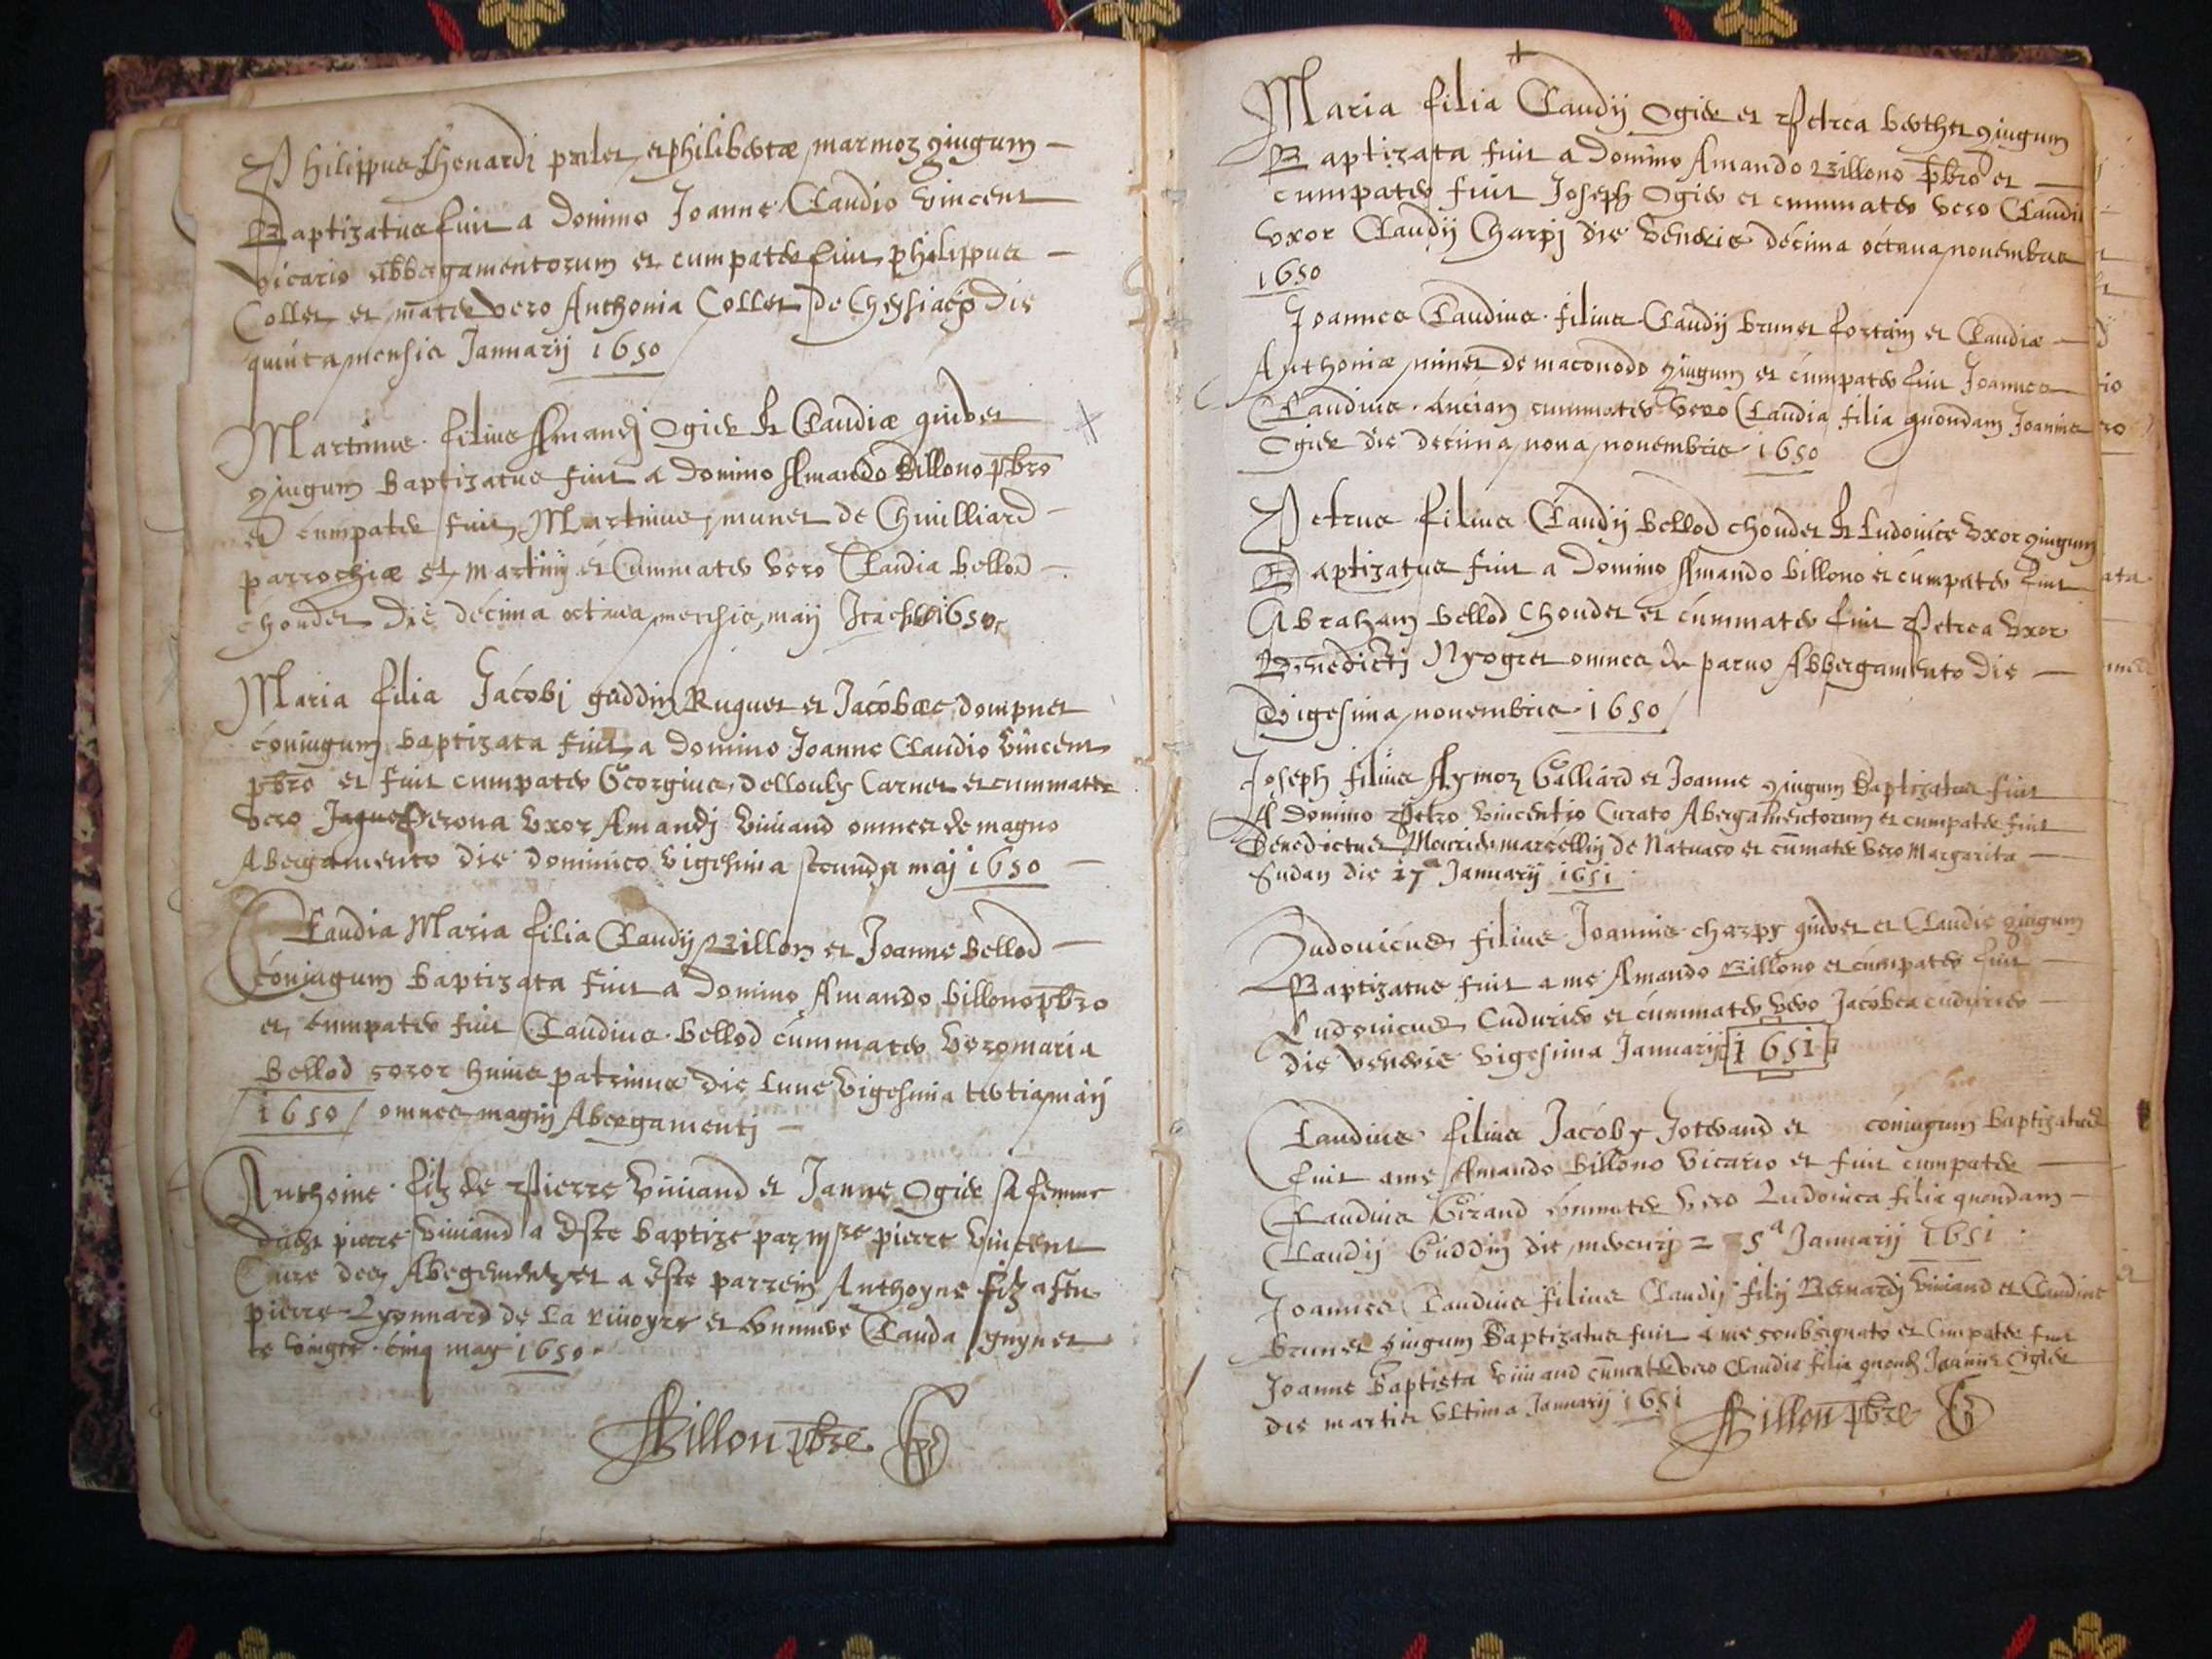 Philippus Lhenardi et philibertæ marmoz gjugum
Baptizatus fuit a domino Joanne Claudio vincent
vicario abbergamentorum et cumpater fuit philippus
Collet et mater vero Anthonia Collet de die
quinta mensis Januarij 1650
Martinus filius Amandj Ogier & Claudiæ
gjugum baptizatus fuit a domino Amando Billono pbro
et cumpater fuit Martinus munet de Chuilliard
parrochiæ St martinij et Cummater vero Claudia bellod
chondet die decima octava mensis maij 1650
Maria filia Jacobj guddin Ruguet et Jacobæ dompnet
coniugum baptizata fuit a domino Joanne Claudio vincent
pbro et fuit cumpater Georgius Carnet et cummater
vero Perona vxor Amandj viviand omnes de magno
Abergamento die dominico vigesima secunda maj 1650
Claudia Maria filia Claudij Billon et Joanne bellod
coniugum baptizata fuit a domino Amando billono pbro
et cumpater fuit Claudius bellod cummater vero maria
bellod soror huius patrinus die lune vigesima tertia maij
1650 omnes magnj Abergamentj
Anthoine filz de Pierre viviand et Janne Ogier sa femme
dudt pierre viviand a este baptize par mre pierre vincent
Cure des et a este parrein Anthoyne filz a feu
pierre Lyonnard de la rivoyre et commere Clauda guynet
le vingte cinq may 1650
Billon pbre
Maria filia Claudij Ogier et Petrea berthet gjugum
Baptizata fuit a domino Amando Billono pbro et
cumpater fuit Joseph Ogier et cummater vero Claudia
vxor Claudij Charpj die veneris decima octava novembris
1650
Joannes Claudius filius Claudij brunet fortain et Claudiæ
Anthoniæ munet de maconodo gjugum et cumpater fuit Joannes
Claudius ancian cummater vero Claudia filia quondam Joannis
Ogier die decima nona novembris 1650
Petrus filius Claudij bellod chondet & Ludovice vxor gjugum
Baptizatus fuit a domino Amando billono et cumpater fuit
Abraham bellod Chondet et cummater fuit Petrea vxor
Benedictj Nyogret omnes de parvo Abbergamento die
vigesima novembris 1650
Joseph filius Aymoz Galliard et Joanne gjugum baptizatus fuit
A domino Petro vincentio Curato Abergamentorum et cumpater fuit
Benedictus marcellin de Natuaco et cummater vero Margarita
Sudan die 17a Januarij 1651
Ludovicus filius Joannis charpy et Claudie gjugum
Baptizatus fuit a me Amando Billono et cumpater fuit
Ludovicus Cudurier et cummater vero Jacobea cudurier
die veneris vigesima Januarij 1651
Claudius filius Jacoby Joterand et coniugum baptizatus
fuit a me Amando billono vicario et fuit cumpater
Claudius Girand cummater vero Ludovica filia quondam
Claudij Guddin die mercurij 25a Januarij 1651
Joannes Claudius filius Claudij filij Bernardj viviand et Claudine
brunet gjugum Baptizatus fuit a me soubsignato et Cumpater fuit
Joanne baptista viviand cummater vero Claudia filia quond Joannis Ogier
die martis vltima Januarij 1651
Billon pbre